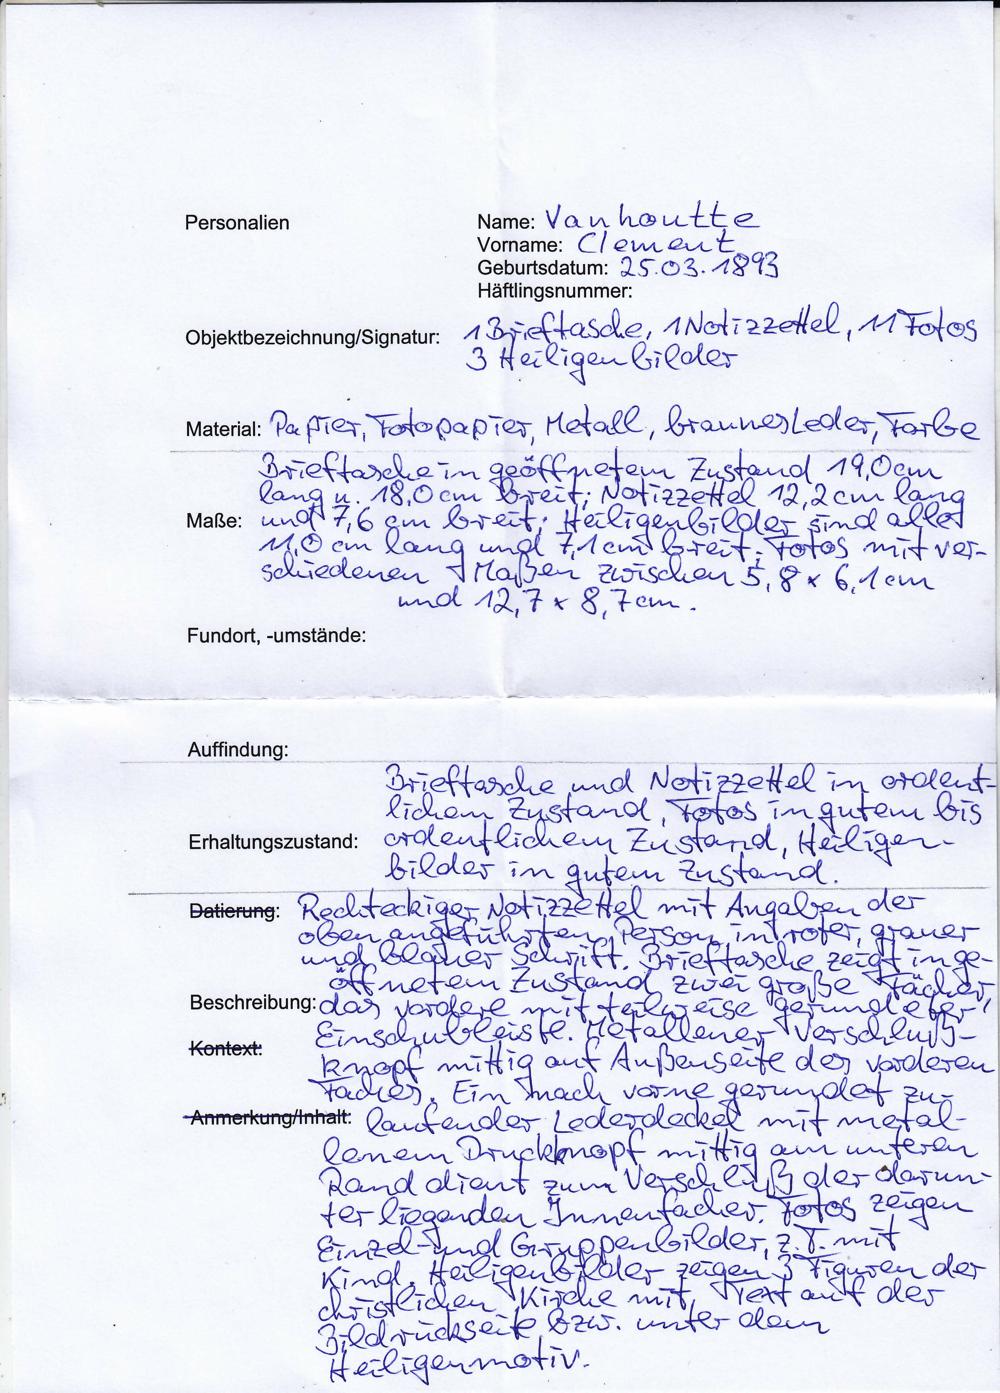 Personalien
Name: Vanhoutte
Vorname: Clement
Geburtsdatum: 25.03.1893
Häftlingsnummer:
Objektbezeichnung/Signatur: 1 Brieftasche, 1 Notizzettel, 11 Fotos
3 Heiligenbilder
Material: Papier, Fotopapier, Metall, braunes Leder, Farbe
Brieftasche in geöffnetem Zustand 19,0 cm
lang u. 18,0 cm breit; Notizzettel 12,2 cm lang
Maße: und 7,6 cm breit; Heiligenbilder sind alle
11,0 cm lang und 7,1 cm breit; Fotos mit ver-
schiedenen Maßen zwischen 5,8 x 6,1 cm
und 12,7 x 8,7 cm.
Fundort, -umstände:
Auffindung:
Brieftasche und Notizzettel in ordent-
lichem Zustand, Fotos in gutem bis
Erhaltungszustand: ordentlichem Zustand, Heiligen-
bilder in gutem Zustand.
Datierung: Rechteckiger Notizzettel mit Angaben der
oben angeführten Person in roter, grauer
und blauer Schrift. Brieftasche zeigt in ge-
öffnetem Zustand zwei große Fächer,
Beschreibung: das vordere mit teilweise gerundeter
Einschubleiste. Metallener Verschluß-
Kontext: knopf mittig auf Außenseite des vorderen
Faches. Ein nach vorne gerundet zu-
Anmerkung/Inhalt: laufender Lederdeckel mit metal-
lenem Druckknopf mittig am unteren
Rand dient zum Verschluß der darun-
ter liegenden Innenfächer. Fotos zeigen
Einzel- und Gruppenbilder, z.T. mit
Kind. Heiligenbilder zeigen 3 Figuren der
christlichen Kirche mit Text auf der
Bildrückseite bzw. unter dem
Heiligenmotiv.